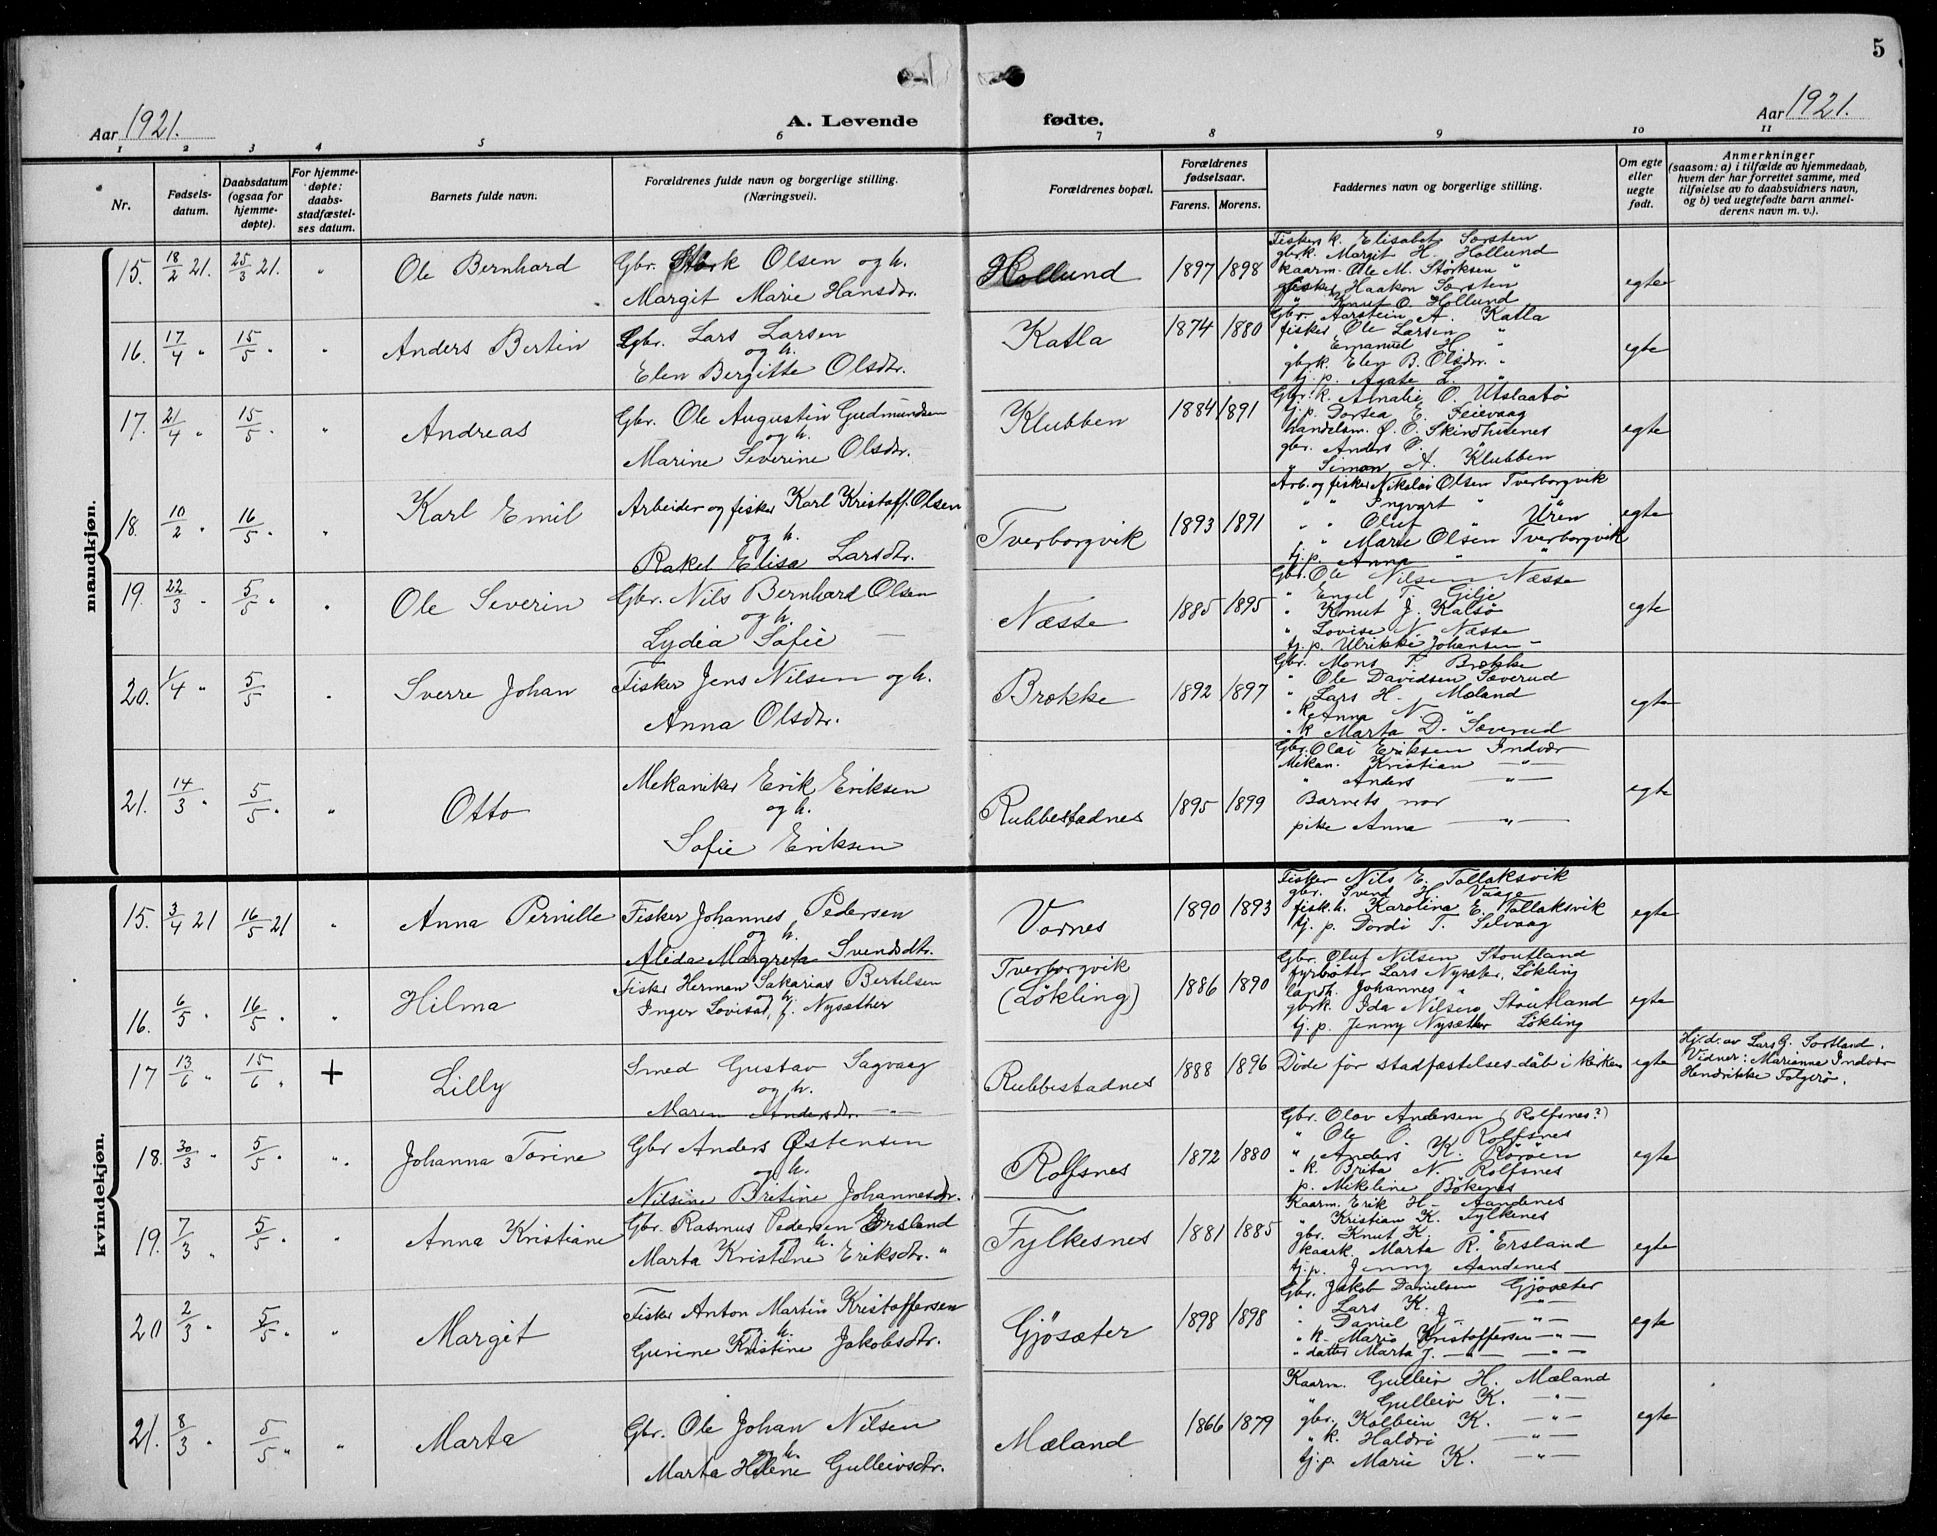 5
Aar 1921.
A. Levende fødte.
Aar 1921.
1 2 3 4 5 6 7 8 9 10 11
Nr.
Fødsels-
datum.
Daabsdatum
(ogsaa for
hjemme-
døpte).
For hjemme-
døpte:
daabs-
stadfæstel-
ses datum.
Barnets fulde navn.
Forældrenes fulde navn og borgerlige stilling.
(Næringsvei).
Forældrenes bopæl.
Forældrenes
fødselsaar.
Farens. Morens.
Faddernes navn og borgerlige stilling.
Om egte
eller
uegte
født.
Anmerkninger
(saasom: a) i tilfælde av hjemmedaab,
hvem der har forrettet samme, med
tilføielse av to daabsvidners navn,
og b) ved uegtefødte barn anmel-
derens navn m. v.).
mandkjøn.
15. 18/2 21. 25/3 21. " Ole Bernhard
Gbr. Stork Olsen og h.
Margit Marie Hansdtr.
Hollund 1897 1898
Fiskers k. Elisabet Sørsten
gbrk. Margit H. Hollund
kaarm. Ole M. Størksen "
fisker Haakon Sørsten
" Knut O. Hollund
egte
16. 17/4 " 15/5 " " Anders Bertin
Gbr. Lars Larsen
og h.
Elen Bergitte Olsdtr.
Katla 1874 1880
Gbr. Aarstein A. Katla
fisker Ole Larsen "
" Emanuel H. "
gbrk. Elen B. Olsdtr. "
tj. p. Agate L. "
egte
17. 21/4 " 15/5 " " Andreas
Gbr. Ole Augustin Gudmundsen
og h.
Marine Severine Olsdtr.
Klubben 1884 1891
Gbr. k. Amalie O. Utslaatø
tj. p. Dorsea E. Feievaag
handelsm. O. O. Skindhuenes
gbr. Anders O. "
" Simon A. Klubben
egte
18. 10/2 " 16/5 " " Karl Emil
Arbeider og fisker Karl Kristoff. Olsen
og h.
Rakel Elisa Larsdtr.
Tverborgvik 1893 1891
Arb. og fisker Nikolai Olsen Tverborgvik
" " Ingvart " "
" " Oluf " Uren
" Marie Olsen Tverborgvik
tj. p. Anna " "
egte
19. 22/3 " 5/5 " " Ole Severin
Gbr. Nils Bernhard Olsen
og h.
Lydia Sofie —
Næsse 1885 1895
Gbr. Ole Nilsen Næsse
" Engel T. Gilje
" Knut J. Kalsø
" Lovise N. Næsse
tj. p. Ulrikke Johansen "
egte
20. 1/4 " 5/5 " Sverre Johan
Fisker Jens Nilsen og h.
Anna Olsdtr.
Brokke 1892 1897
Gbr. Mons T. Brokke
" Ole Davidsen Sæverud
" Lars H. Mæland
" k. Anna N. "
" k Marta D. Sæverud
egte
21. 14/3 " 5/5 " " Otto
Mekaniker Erik Eriksen
og h.
Sofie Eriksen
Rubbestadnes 1895 1899
Gbr. Olai Eriksen Indvær
Mekan. Kristian — " —
" Anders — " —
Barnets mor
pike Anna — " —
egte
kvindekjøn.
15. 3/4 21 16/5 21 " Anna Pernille
Fisker Johannes Pedersen
og h.
Alida Margreta Svendsdtr.
Vornes 1890 1893
Fisker Nils E. Tollaksvik
gbr. Svend H. Vaage
fisk. h. Karolina E. Tollaksvik
tj. p. Dordi T. Selvaag
egte
16. 6/5 " 16/5 " " Hilma
Fisker Herman Sakarias Bertelsen
og h.
Inger Lovisa, f. Nysæther
Tverborgvik
(Løkling) 1886 1890
Gbr. Oluf Nilsen Stoutland
fyrbøter Lars Nysæter, Løkling
landh. Johannes "
gbrk. Ida Nilsen, Stoutland
tj. p. Jenny Nysæther Løkling
egte
17 13/6 " 15/6 " + Lilly
Smed Gustav Sagvaag
og h.
Maren Andersdtr. — " —
Rubbestadnes 1888 1896
Døde før stadfæstelsesdåb i kirken
egte
Hj. d. av Lars G. Sortland.
Vidner: Marianne Indvær
Hendrikke Folgerø.
18. 30/3 " 5/5 " " Johanna Torine
Gbr Anders Østensen
og h.
Nilsine Britine Johannesdtr.
Rolfsnes 1872 1880
Gbr. Olav Andersen (Rolfsnes?)
" Ole O. Rolfsnes
" Anders K. Rørøen
" k. Brita N. Rolfsnes
p. Mikline Bøkenes
egte
19. 7/3 " 5/5 " " Anna Kristiane
Gbr. Rasmus Pedersen Ersland
og h.
Marta Kristine Eriksdtr. "
Fylkesnes 1881 1885
Kaarm. Erik H. Aandenes
" Kristian K. Fylkenes
gbr. Knut K. "
kaark. Marta R. Ersland
tj. p. Jenny Aandenes
egte
20 2/3 " 5/5 " " Margit
Fisker Anton Martin Kristoffersen
og h.
Gurine Kristine Jakobsdtr.
Gjøsæter 1898 1898
Gbr. Jakob Danielsen Gjøsæter
" Lars K. — " —
" Daniel J. — " —
" k. Marie Kristoffersen — " —
" datter Marta J. — " — — " —
egte
21. 8/3 " 5/5 " " Marta
Gbr. Ole Johan Nilsen
og h.
Marta Helene Gulleivsdtr.
Mæland 1866 1879
Kaarm. Gulleiv H. Mæland
" Gulleiv K. — " —
gbr. Kolbein K. — " —
" k. Haldri — " —
tj. p Marie K. — " —
egte